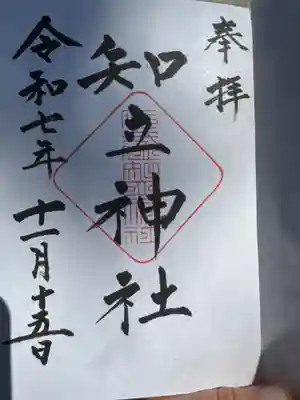 奉拝
知立神社
令和七年 十一月十五日